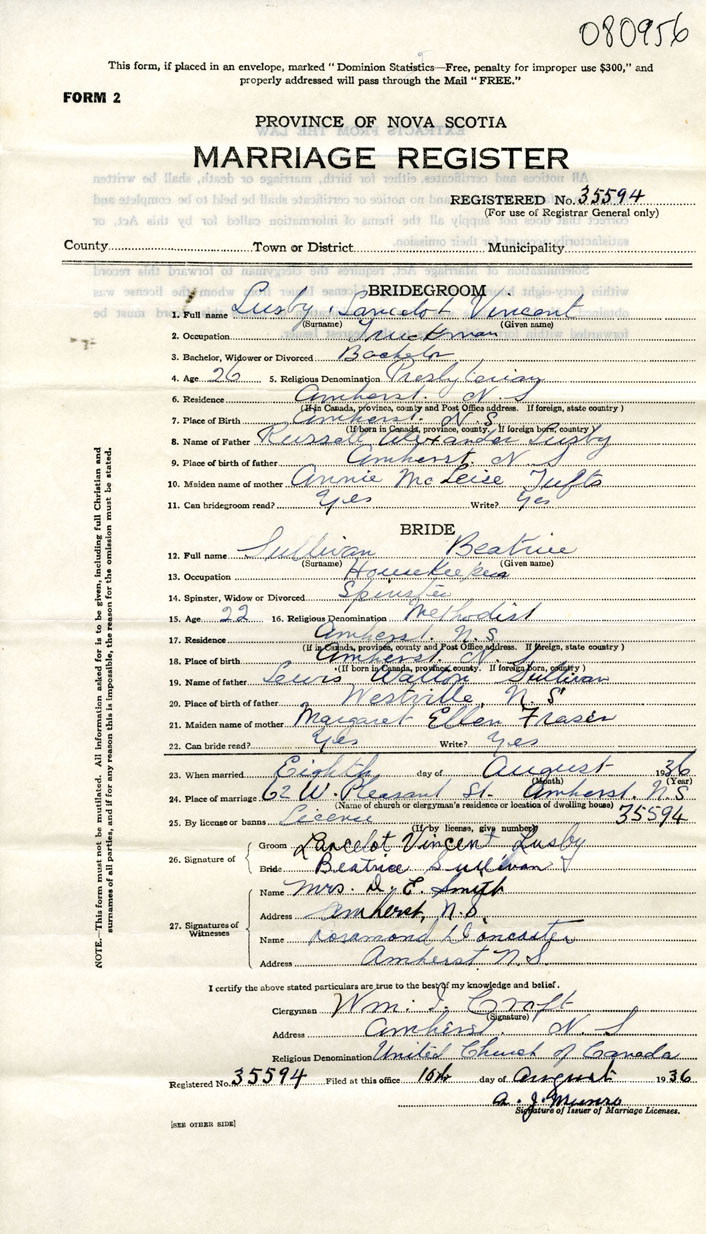 080956
This form, if placed in an envelope, marked "Dominion Statistics—Free, penalty for improper use $300," and
properly addressed will pass through the Mail "FREE."
FORM 2
PROVINCE OF NOVA SCOTIA
MARRIAGE REGISTER
REGISTERED No. 35594
(For use of Registrar General only)
County Town or District Municipality
BRIDEGROOM
1. Full name Lusby, Lancelot Vincent
(Surname) (Given name)
2. Occupation Truckman
3. Bachelor, Widower or Divorced Bachelor
4. Age 26 5. Religious Denomination Presbyterian
6. Residence Amherst. N. S
(If in Canada, province, county and Post Office address. If foreign, state country)
7. Place of Birth Amherst. N. S
(If born in Canada, province, county. If foreign born, country)
8. Name of Father Russell Alexander Lusby
9. Place of birth of father Amherst. N. S
10. Maiden name of mother Annie McLeise Tufts
11. Can bridegroom read? Yes Write? Yes
BRIDE
12. Full name Sullivan Beatrice
(Surname) (Given name)
13. Occupation Housekeeper
14. Spinster, Widow or Divorced Spinster
15. Age 22 16. Religious Denomination Methodist
17. Residence Amherst. N. S
(If in Canada, province, county and Post Office address. If foreign, state country)
18. Place of birth Amherst. N. S
(If born in Canada, province, county. If foreign born, country)
19. Name of father Lewis Walton Sullivan
20. Place of birth of father Westville, N. S
21. Maiden name of mother Margaret Ellen Fraser
22. Can bride read? Yes Write? Yes
23. When married Eighth day of August 1936
(Month) (Year)
24. Place of marriage 62 W. Pleasant St. Amherst. N. S
(Name of church or clergyman's residence or location of dwelling house)
25. By license or banns License 35594
(If by license, give number)
26. Signature of Groom Lancelot Vincent Lusby
Bride Beatrice Sullivan
27. Signatures of Witnesses Name Mrs. D. E. Smith
Address Amherst, N. S.
Name Rosamond Doncaster
Address Amherst N. S.
I certify the above stated particulars are true to the best of my knowledge and belief.
Clergyman Wm. I. Croft
(Signature)
Address Amherst. N. S
Religious Denomination United Church of Canada
Registered No. 35594 Filed at this office 10th day of August 1936
A. J. Munro
Signature of Issuer of Marriage Licenses.
[SEE OTHER SIDE]
NOTE.—This form must not be mutilated. All information asked for is to be given, including full Christian and
surnames of all parties, and if for any reason this is impossible, the reason for the omission must be stated.